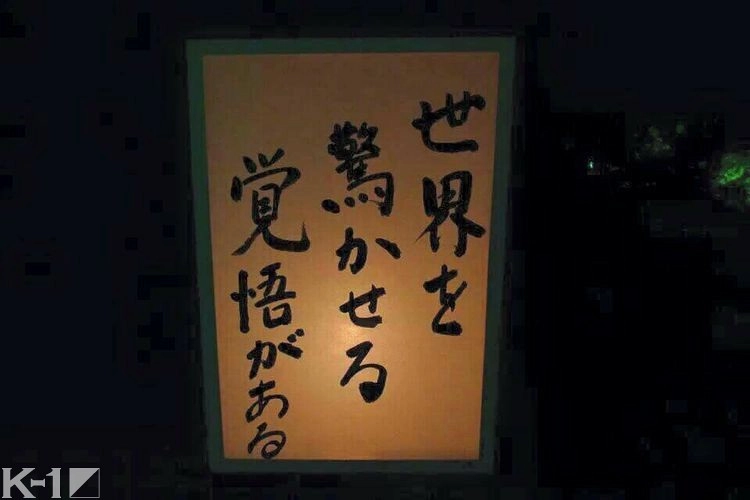 世界を
驚かせる
覚悟がある
K-1